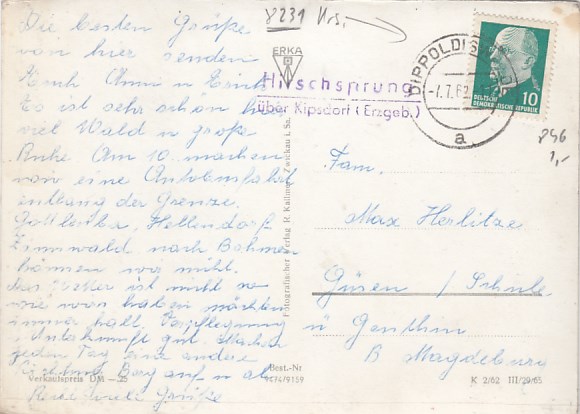 8231 Hrs.
Die besten Grüße
von hier senden
Euch Anna u Erich
Es ist sehr schön hier
viel Wald u große
Ruhe. Am 10. machen
wir eine Autobusfahrt
entlang der Grenze.
Gottleuba, Hellendorf
Zinnwald nach Böhmen
können wir nicht.
Das Wetter ist nicht so
wie wir haben möchten
immer kalt. Verpflegung
u Unterkunft gut. Machen
jeden Tag eine andere
Richtung Berg auf u ab
Grüße
Verkaufspreis DM —.25
ERKA
Hirschsprung
über Kipsdorf (Erzgeb.)
DIPPOLDISWALDE
-7.7.62
a
10
DEUTSCHE
DEMOKRATISCHE REPUBLIK
896
1,-
Fam.
Max Herlitze
Güsen / Schule
ü Genthin
B Magdeburg
Fotografischer Verlag R. Kallmer, Zwickau i. Sa.
Best.-Nr
K 2/62 III/29/65